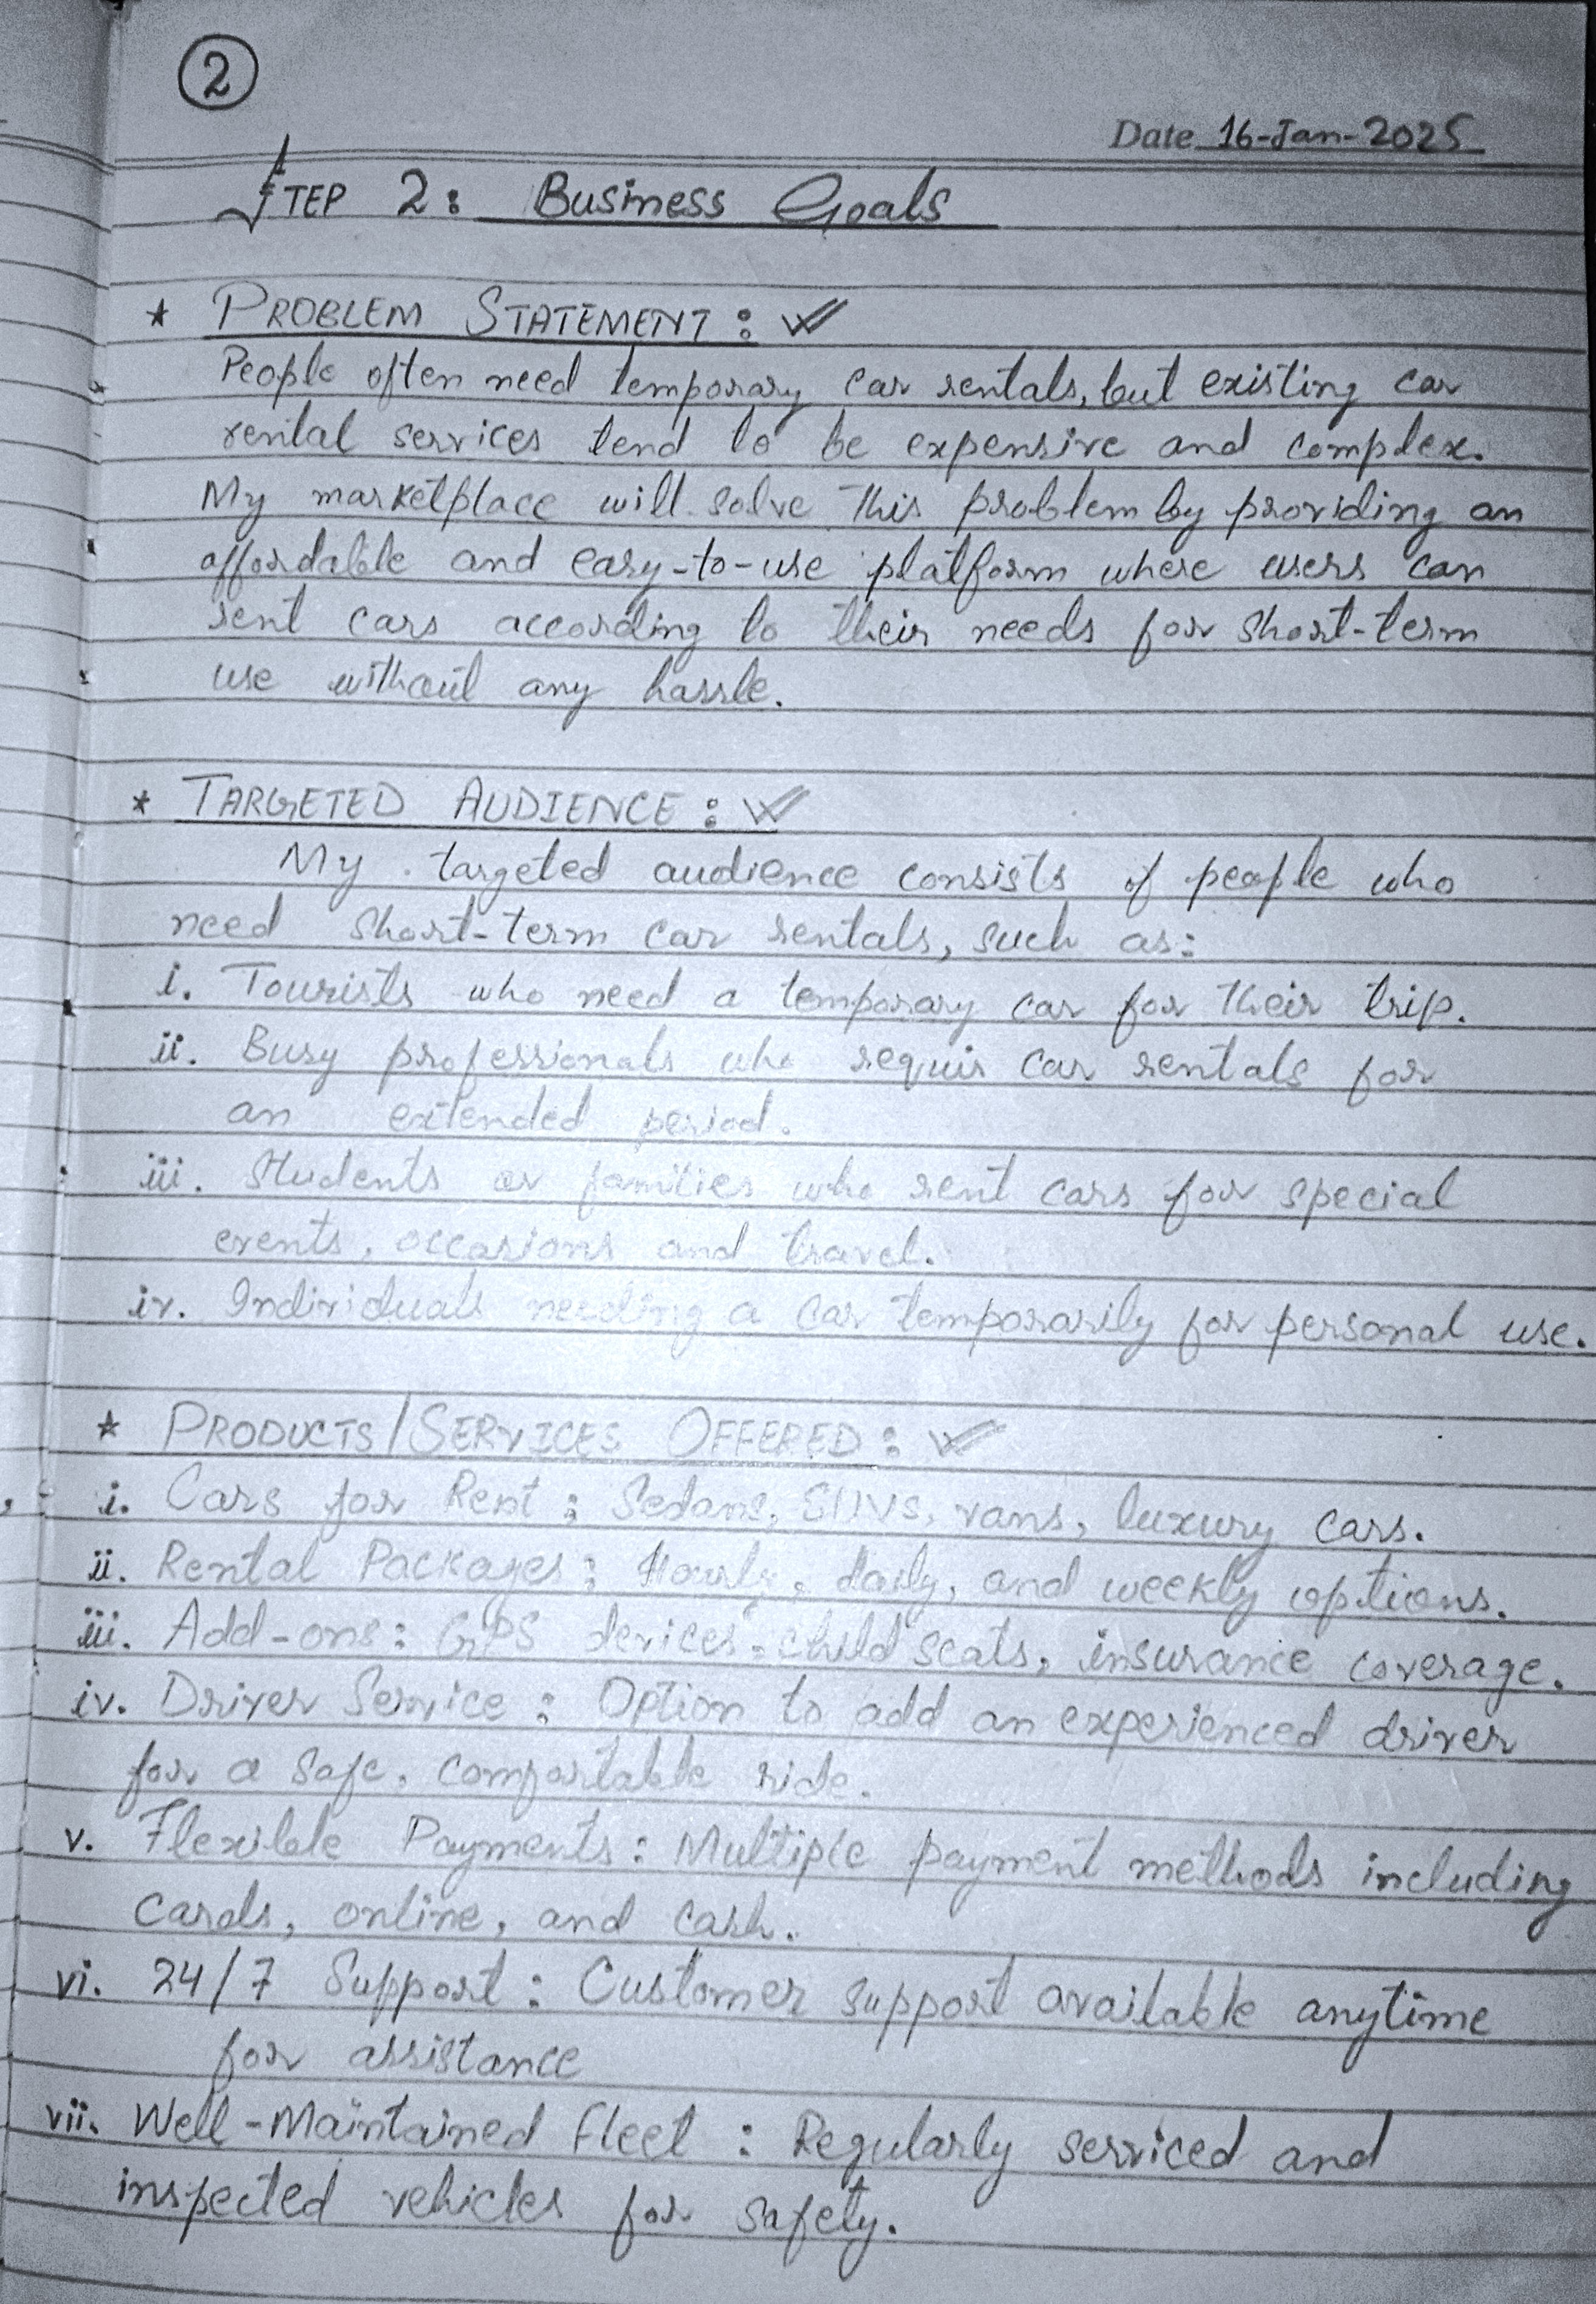 2
Date 16-Jan-2025
STEP 2: Business Goals
* PROBLEM STATEMENT:
People often need temporary car rentals, but existing car
rental services tend to be expensive and complex.
My marketplace will solve this problem by providing an
affordable and easy-to-use platform where users can
rent cars according to their needs for short-term
use without any hassle.
* TARGETED AUDIENCE:
My targeted audience consists of people who
need short-term car rentals, such as:
i. Tourists who need a temporary car for their trip.
ii. Busy professionals who requir car rentals for
an extended period.
iii. Students or families who rent cars for special
events, occasions and travel.
iv. Individuals needing a car temporarily for personal use.
* PRODUCTS/SERVICES OFFERED:
i. Cars for Rent: Sedans, SUVs, vans, luxury cars.
ii. Rental Packages: Hourly, daily, and weekly options.
iii. Add-ons: GPS devices, child seats, insurance coverage.
iv. Driver Service: Option to add an experienced driver
for a safe, comfortable ride.
v. Flexible Payments: Multiple payment methods including
cards, online, and cash.
vi. 24/7 Support: Customer support available anytime
for assistance
vii. Well-Maintained Fleet: Regularly serviced and
inspected vehicles for safety.